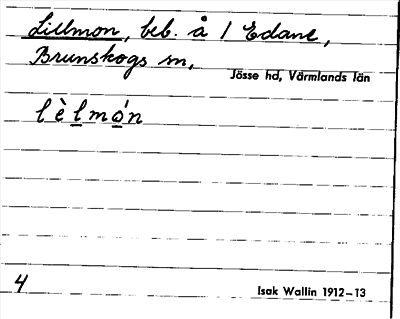 Lillmon, beb. å 1 Edane,
Brunskogs sn,
Jösse hd, Värmlands län
lèlmón
4
Isak Wallin 1912–13